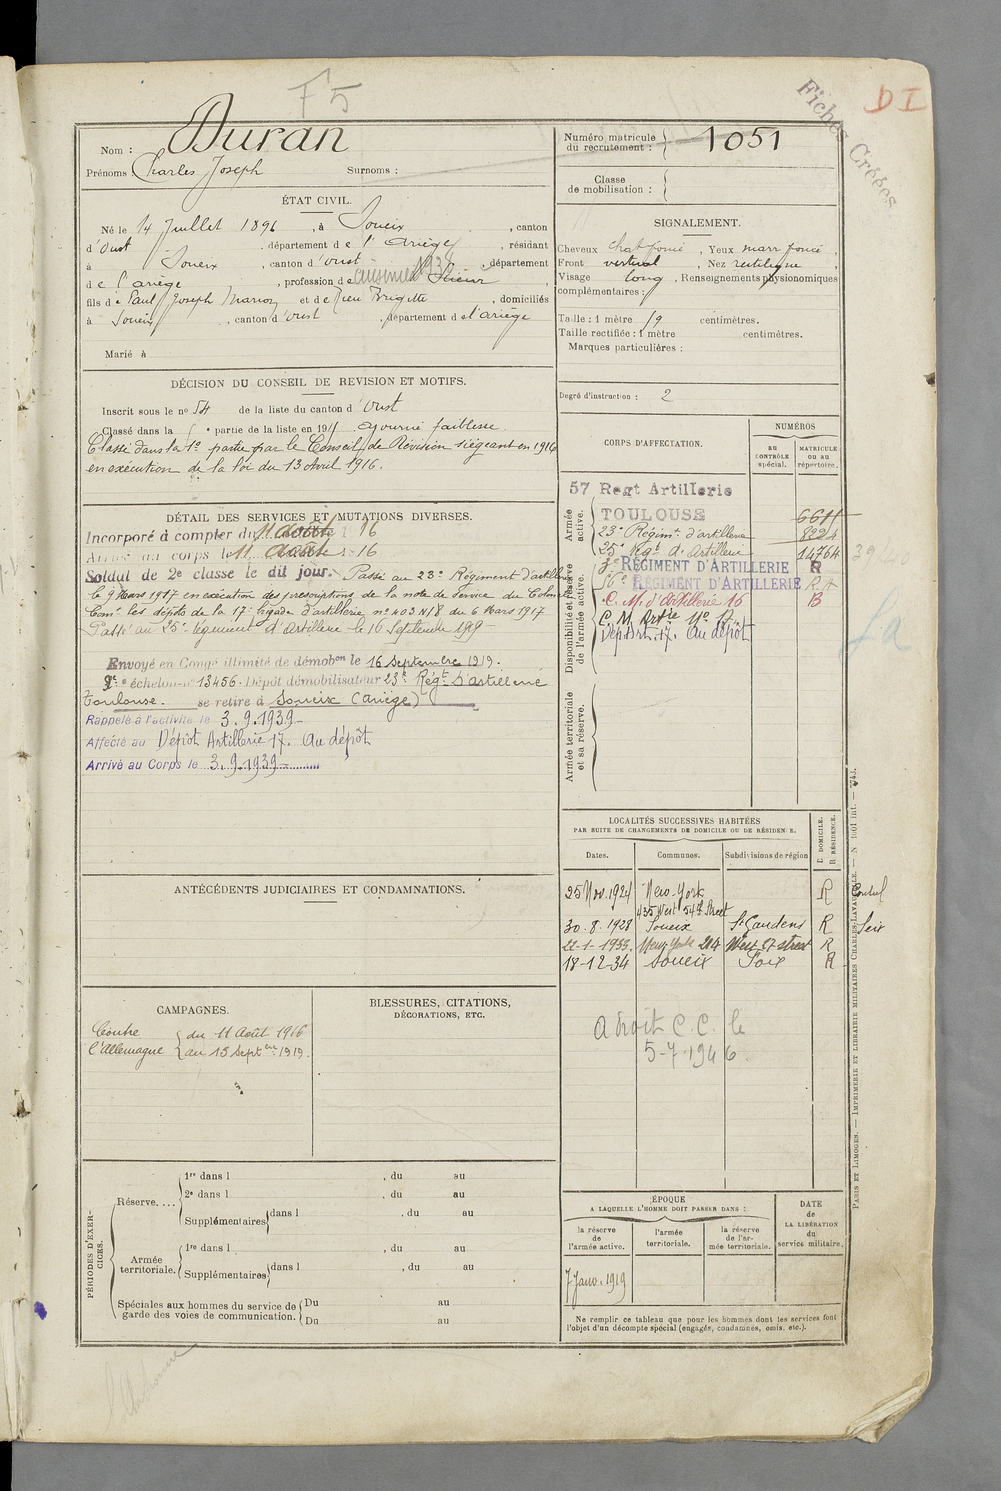 F5
D I
Fiches Créées
Nom : Duran
Prénoms : Charles Joseph Surnoms :
Numéro matricule du recrutement : 1051
Classe de mobilisation :
ÉTAT CIVIL.
Né le 14 Juillet 1896, à Soueix, canton
d'Oust, département de l'Ariège, résidant
à Soueix, canton d'Oust, département
de l'Ariège, profession de cuisinier 1938
fils de Paul Joseph Marion et de Brigitte, domiciliés
à Soueix, canton d'Oust, département de l'Ariège
Marié à
SIGNALEMENT.
Cheveux chat foncé, Yeux marr foncé
Front vertical, Nez rectiligne
Visage long, Renseignements physionomiques
complémentaires :
Taille : 1 mètre 19 centimètres.
Taille rectifiée : 1 mètre centimètres.
Marques particulières :
Degré d'instruction : 2
DÉCISION DU CONSEIL DE REVISION ET MOTIFS.
Inscrit sous le no 54 de la liste du canton d'Oust
Classé dans la e partie de la liste en 191 Ajourné faiblesse.
Classé dans la 1e partie par le Conseil de Révision siégeant en 1916
en exécution de la loi du 13 Avril 1916.
DÉTAIL DES SERVICES ET MUTATIONS DIVERSES.
Incorporé à compter du 11 Août 16
Arrivé au corps le 11 Août 16
Soldat de 2e classe le dit jour. Passé au 23e Régiment d'artillerie
le 9 Mars 1917 en exécution des prescriptions de la note de service du Colonel
Comt les dépôts de la 17e brigade d'artillerie no 403 N/8 du 6 Mars 1917
Passé au 25e régiment d'Artillerie le 16 Septembre 1919
Envoyé en Congé illimité de démobon le 16 Septembre 1919.
9e échelon no 13456. Dépôt démobilisateur 23e Régt d'artillerie
Toulouse. se retire à Soueix (Ariège)
Rappelé à l'activité le 3.9.1939
Affecté au Dépôt Artillerie 17. Au dépôt
Arrivé au Corps le 3.9.1939
CORPS D'AFFECTATION.
NUMÉROS
AU CONTRÔLE spécial.
MATRICULE OU AU répertoire.
Armée active.
57 Regt Artillerie
TOULOUSE
23e Régimt d'artillerie 8224
25e Régt d'Artillerie 14764
Disponibilité et réserve de l'armée active.
3e RÉGIMENT D'ARTILLERIE R
16e RÉGIMENT D'ARTILLERIE
C. M. d'Artillerie 16 B
C M Artie No 17
Dépôt Art. 17. Au dépôt
Armée territoriale et sa réserve.
LOCALITÉS SUCCESSIVES HABITÉES
PAR SUITE DE CHANGEMENTS DE DOMICILE OU DE RÉSIDENCE.
Dates. Communes. Subdivisions de région
D. DOMICILE. R. RÉSIDENCE.
25 Nov. 1924 New-York R Consul
435 West 54th Street
30-8-1928 Soueix St Gaudens R Seix
22-1-1933. New York 214 West St street R
18-12-34 Soueix Foix R
A droit C.C. le
5-7-1946.
ANTÉCÉDENTS JUDICIAIRES ET CONDAMNATIONS.
CAMPAGNES.
Contre l'Allemagne du 11 Août 1916
au 15 Septembre 1919.
BLESSURES, CITATIONS,
DÉCORATIONS, ETC.
PÉRIODES D'EXERCICES.
Réserve....
1re dans l , du au
2e dans l , du au
Supplémentaires dans l , du au
Armée territoriale.
1re dans l , du au
Supplémentaires dans l , du au
Spéciales aux hommes du service de garde des voies de communication.
Du au
Du au
ÉPOQUE
A LAQUELLE L'HOMME DOIT PASSER DANS :
la réserve de l'armée active.
l'armée territoriale.
la réserve de l'armée territoriale.
DATE de LA LIBÉRATION du service militaire.
7 Janv. 1919
Ne remplir ce tableau que pour les hommes dont les services font
l'objet d'un décompte spécial (engagés, condamnés, omis, etc.).
PARIS ET LIMOGES. — IMPRIMERIE ET LIBRAIRIE MILITAIRES CHARLES-LAVAUZELLE.